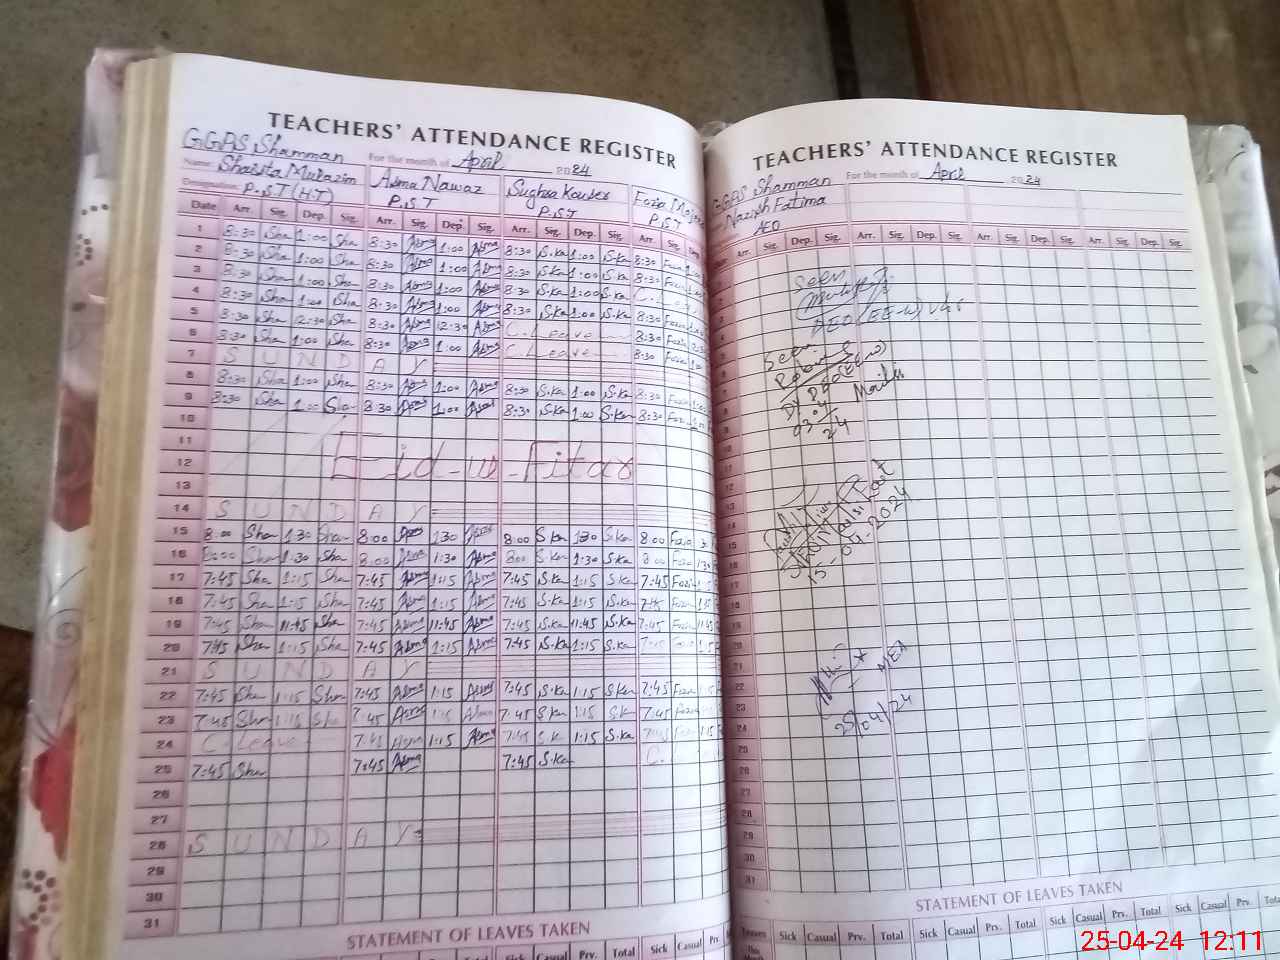 TEACHERS' ATTENDANCE REGISTER
GGPS Shamman For the month of April 2024
Name: Shaista Mulazim Asma Nawaz Sughra Kouser Fozia
Designation: P.S.T (H.T) P.S.T P.S.T P.S.T
Date Arr. Sig. Dep. Sig. Arr. Sig. Dep. Sig. Arr. Sig. Dep. Sig. Arr. Sig.
1 8:30 Sha 1:00 Sha 8:30 Asma 1:00 Asma 8:30 S.Ka 1:00 S.Ka 8:30
2 8:30 Sha 1:00 Sha 8:30 Asma 1:00 Asma 8:30 S.Ka 1:00 S.Ka 8:30
3 8:30 Sha 1:00 Sha 8:30 Asma 1:00 Asma 8:30 S.Ka 1:00 S.Ka
4 8:30 Sha 1:00 Sha 8:30 Asma 1:00 Asma 8:30 S.Ka 1:00 S.Ka 8:30
5 8:30 Sha 12:30 Sha 8:30 Asma 12:30 Asma C.Leave 8:30
6 8:30 Sha 1:00 Sha 8:30 Asma 1:00 Asma C.Leave 8:30
7 SUNDAY
8 8:30 Sha 1:00 Sha 8:30 Asma 1:00 Asma 8:30 S.Ka 1:00 S.Ka 8:30
9 8:30 Sha 1:00 Sha 8:30 Asma 1:00 Asma 8:30 S.Ka 1:00 S.Ka 8:30
10
11
12 Eid-ul-Fitar
13
14 SUNDAY
15 8:00 Sha 1:30 Sha 8:00 Asma 1:30 Asma 8:00 S.Ka 1:30 S.Ka 8:00
16 8:00 Sha 1:30 Sha 8:00 Asma 1:30 Asma 8:00 S.Ka 1:30 S.Ka 8:00
17 7:45 Sha 1:15 Sha 7:45 Asma 1:15 Asma 7:45 S.Ka 1:15 S.Ka 7:45
18 7:45 Sha 1:15 Sha 7:45 Asma 1:15 Asma 7:45 S.Ka 1:15 S.Ka 7:45
19 7:45 Sha 11:45 Sha 7:45 Asma 11:45 Asma 7:45 S.Ka 11:45 S.Ka 7:45
20 7:45 Sha 1:15 Sha 7:45 Asma 1:15 Asma 7:45 S.Ka 1:15 S.Ka 7:45
21 SUNDAY
22 7:45 Sha 1:15 Sha 7:45 Asma 1:15 Asma 7:45 S.Ka 1:15 S.Ka 7:45
23 7:45 Sha 1:15 Sha 7:45 Asma 1:15 Asma 7:45 S.Ka 1:15 S.Ka 7:45
24 C.Leave 7:45 Asma 1:15 Asma 7:45 S.Ka 1:15 S.Ka 7:45
25 7:45 Sha 7:45 Asma 7:45 S.Ka C.
26
27
28 SUNDAY
29
30
31
STATEMENT OF LEAVES TAKEN
Sick Casual Prv. Total Sick Casual Prv. Total Sick Casual Prv.
TEACHERS' ATTENDANCE REGISTER
GGPS Shamman For the month of April 2024
Nazish Fatima
AEO
Sig. Dep. Sig. Arr. Sig. Dep. Sig. Arr. Sig. Dep. Sig. Arr. Sig. Dep. Sig.
Seen
DEO (EE-W)
Seen
Dy. DEO (EE-W)
03.04
24
15-04-2024
MEA
25/04/24
STATEMENT OF LEAVES TAKEN
Leaves Sick Casual Prv. Total Sick Casual Prv. Total Sick Casual Prv.
25-04-24 12:11